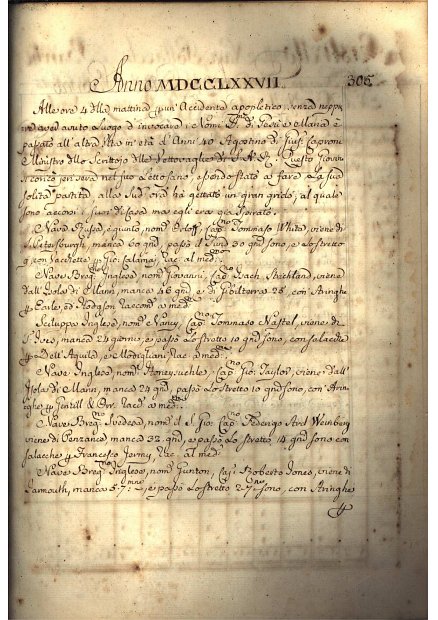 Anno MDCCLXXVII. 306
Alle ore 4 della mattina p un' Accidente apopletico, senza neppu
re aver avuto Luogo d'invocare i Nomi di Gesù e Maria è
passato all' altra Vita in età d'Anni 40 Agostino di Gius: Caproni
Ministro dello Scrittojo delle Vettovaglie di S.A.R. Questo Giovane
si coricò jeri sera nel suo Letto sano essendo stato a fare la sua
solita partita, alla Sud.a ora hà gettato un gran grido, al quale
sono accorsi i suoi di Casa ma egli era già spirato.
Nave Russa, è giunto, nom.o Orloff, Cap.no Tommaso White, viene di
S. Petersburgh, manca 60 gni, passò il Sund 30 gni sono, e Lo stretto
9, con Vacchette p Gio: Calamai, Rac: al med.mo
Nave Breg.no Inglese nom.o Giovanni, Cap.no Zach. Strickland, viene
dall' Isola di Mann, manca 46 gni e di Gibilterra 28, con Aringhe
p Earle, e Hodgson Raccom.o a med.mi
Sciluppa Inglese, nom.o Nancy, Cap.no Tommaso Nastel, viene di
S. Ives, manca 24 giorni, e passò Lo stretto 10 gni sono, con salacche
p Dell' Aquila, e Modigliani Rac: a med.mi
Nave Inglese, nom.o Honeysuckle, Cap.no Gio: Taylor, viene dall'
Isola di Mann, manca 24 gni, passò Lo stretto 10 gni sono, con Arin
ghe p Gentill & Orr. Rac.o a med.mi
Nave Breg.no Svedesa, nom.o il S. Gio: Cap.no Federigo Arvd Weinberg
viene di Penzance, manca 32 gni, e passò Lo stretto 14 gni sono con
salacche p Francesco Jermy, Rac: al med.mo
Nave Breg.no Inglese, nom.o Gunton, Cap.o Roberto Jones, viene di
Yarmouth, manca 5 7.mne, e passò Lo stretto 2 7.ne sono, con Aringhe
p